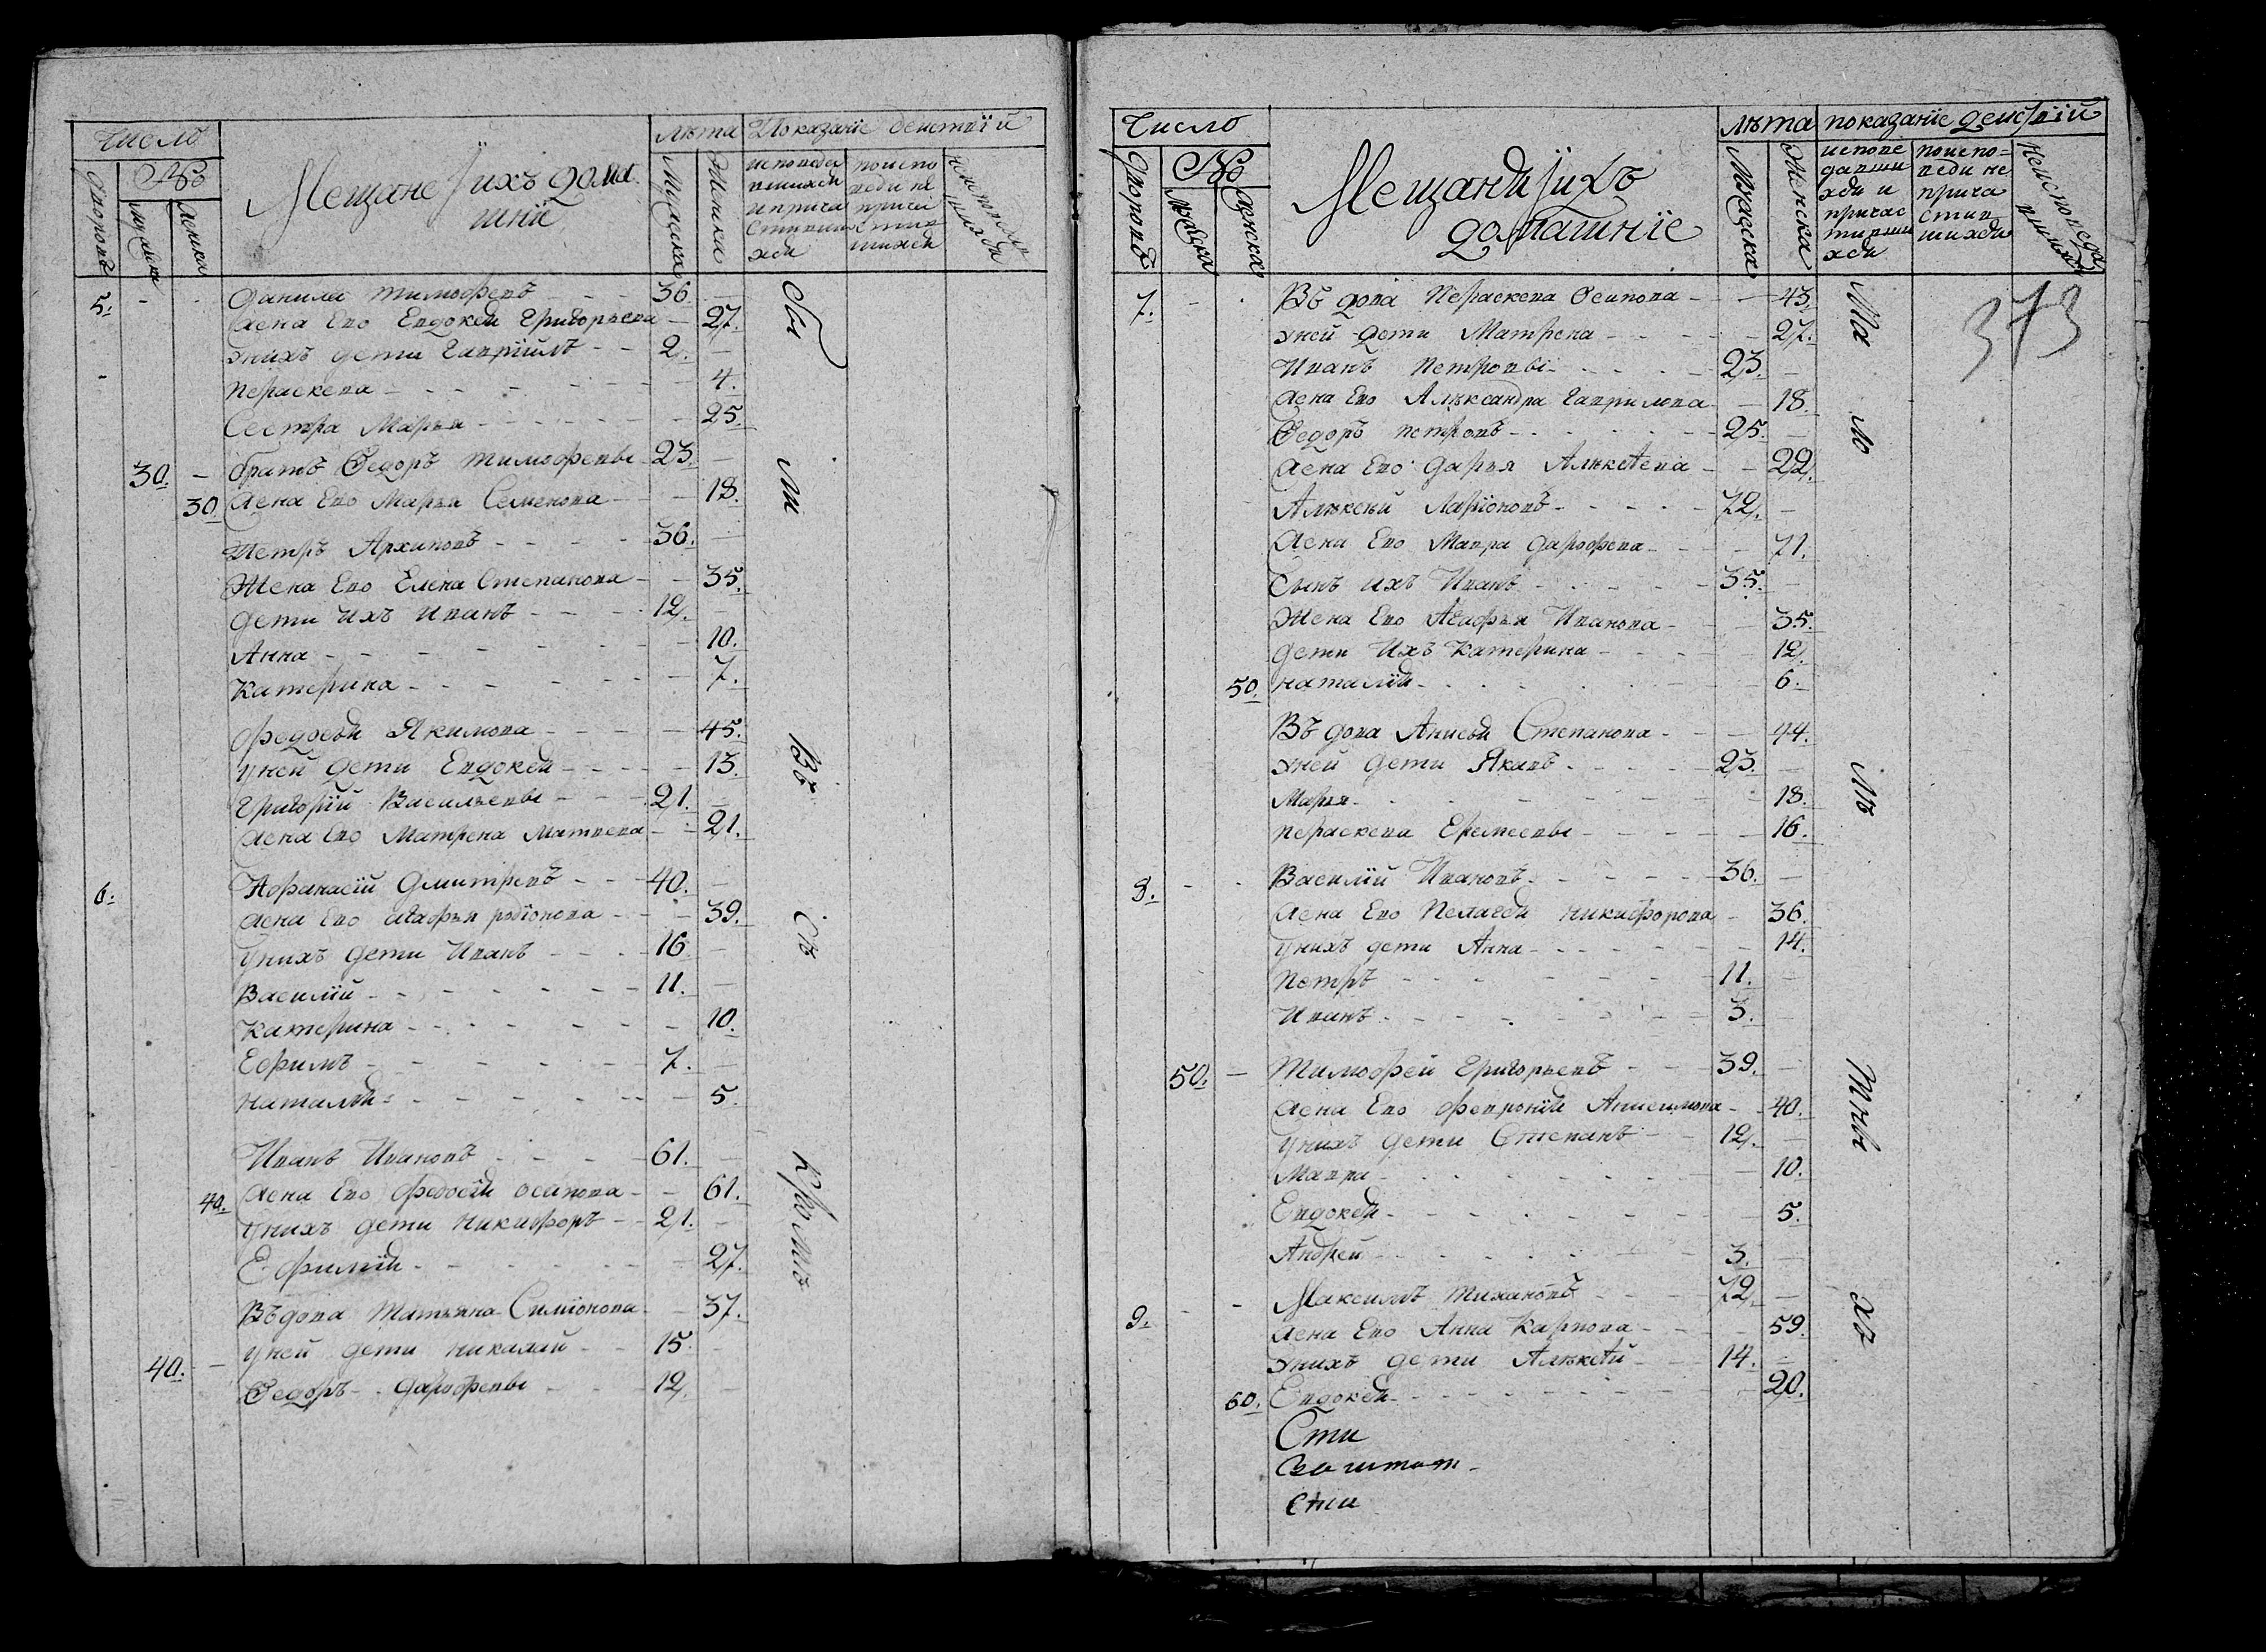 Число
Лѣта Показание действïй
№
Мещане ӱ ихъ дома
шнïе
Дворовъ
Мужска
Женска
Мужска
Женска
исповеда
вшихся
и прича
стивши
хся
по испо
веди не
прича
стив
шихся
5. - . Данила Тимофеевъ - - - 36. -
Жена Ево Евдокея Григорьева - 27.
у нихъ дети Гаврïилъ - - 2. -
Пераскева - - - - - - - 4.
Сестра Марья - - - - - - 25.
30. - братъ Ѳедоръ Тимофеевы - 23. -
30. Жена Ево Марья Семенова - - 18.
Петръ Архиповъ - - - - 36. -
Жена Ево Елена Степанова - - 35.
дети ихъ Иванъ - - - 12. -
Анна - - - - - - - - 10.
Катерина - - - - - - - 7.
Федосья Якимова - - - - 45.
у ней дети Евдокея - - - - 13.
Григорïй Васильевы - - - 21. -
Жена Ево Матрена Матвева - - 21.
6. Афанасïй Дмитревъ - - - 40. -
Жена Ево Агафья Родïонова - - - 39.
у нихъ дети Иванъ - - - 16 -
Василïй - - - - - - - 11. -
Катерина - - - - - - - 10.
Ефимъ - - - - - - 7. -
Наталья - - - - - - - 5.
Иванъ Ивановъ - - - - 61. -
40. Жена Ево Федосïя Осипова - - 61.
у нихъ дети Никифоръ - - 21. -
Ефимïя - - - - - - - 27.
Въдова Татьяна Симïонова - - 37.
40. - у ней дети Николай - - 15. -
Ѳедоръ - - Дарофеевы - - - 12. -
Вѣ
Сѣ
Число
Лѣта показанïе действïй
№
Мещаня ӱ ихъ
домашнïе
Дворовъ
Мужска
Женска
Мужска
Женска
испове
давши
хся и
причас
тивши
хся
по испо=
веди не
прича
стив
шихся
Неисповеда
вшихся
373
7. - . Въдова Пераскева Осипова - - - 43.
у ней дети Матрена - - - - - 27.
Иванъ Петровы - - - - - 23. -
Жена Ево Алѣксандра Гаврилова - 18.
Ѳедоръ Петровъ - - - - - - 25. -
Жена Ево Дарья Алѣксѣева - - 22.
Алѣксѣй Ларïоновъ - - - - - 72. -
Жена Ево Мавра Дарофева - - - 71.
Сынъ ихъ Иванъ - - - - - 35. -
Жена Ево Агафья Иванова - - - 35.
дети ихъ Катерина - - - - 12.
50. Наталïя - - - - - - - - 6.
Въдова Анисья Степанова - - - 44.
у ней дети Якавъ - - - - - 23. -
Марья - - - - - - - - - 18.
Пераскева Еремеевы - - - - - 16.
8. - - Василïй Ивановъ - - - - - 36. -
Жена Ево Пелагея Никифорова - 36.
у нихъ дети Анна - - - - - - 14.
Петръ - - - - - - - - 11. -
Иванъ - - - - - - - - 3.
50. - Тимофей Григорьевъ - - - 39. -
Жена Ево Феврония Анисимова - 40.
у нихъ дети Степанъ - - 12. -
Мавра - - - - - - - - 10.
Евдокея - - - - - - - - 5.
Андрей - - - - - - - 3. -
9. - - Максимъ Тихановъ - - - - 72. -
Жена Ево Анна Карпова - - - - 59.
у нихъ дети Алѣксѣй - - 14. -
60. Евдокея - - - - - - - - 20.
Ма
ло
лѣ
тны
хъ